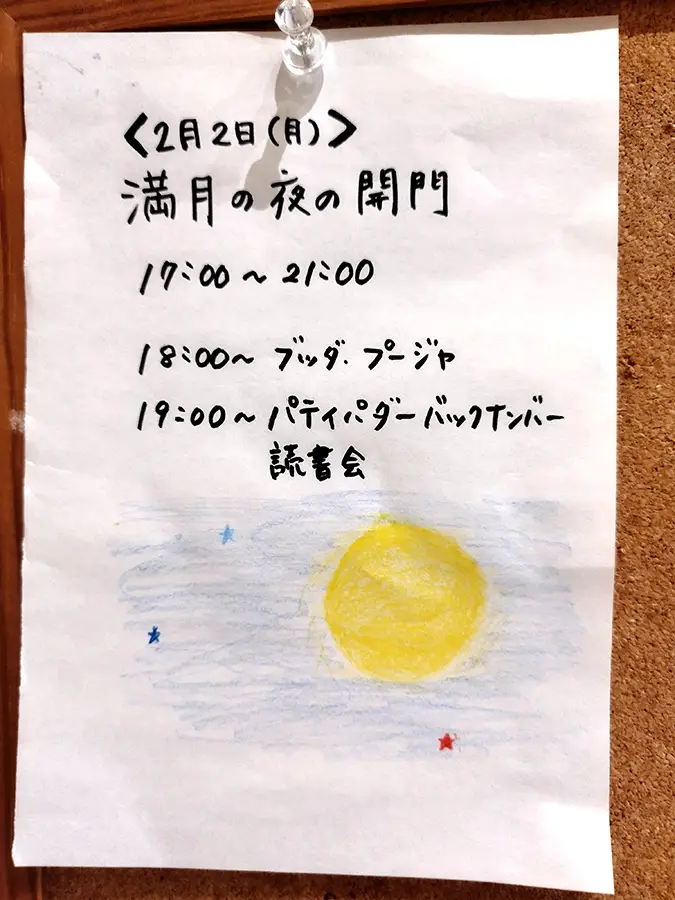 <2月2日(月)>
満月の夜の開門
17:00〜21:00
18:00〜 ブッダ・プージャ
19:00〜パティパダーバックナンバー
読書会